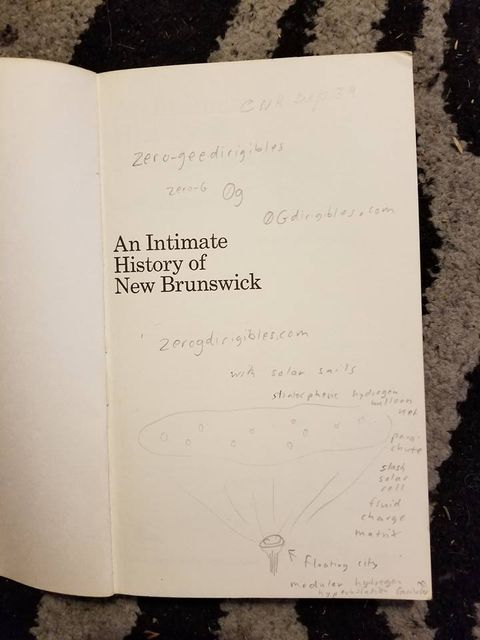 zero-geedirigibles
zero-G 0g
0Gdirigibles.com
An Intimate
History of
New Brunswick
zerogdirigibles.com
with solar sails
stratospheric hydrogen
balloon
net
para-
chute
slash
solar
cell
fluid
charge
matrix
floating city
modular hydrogen